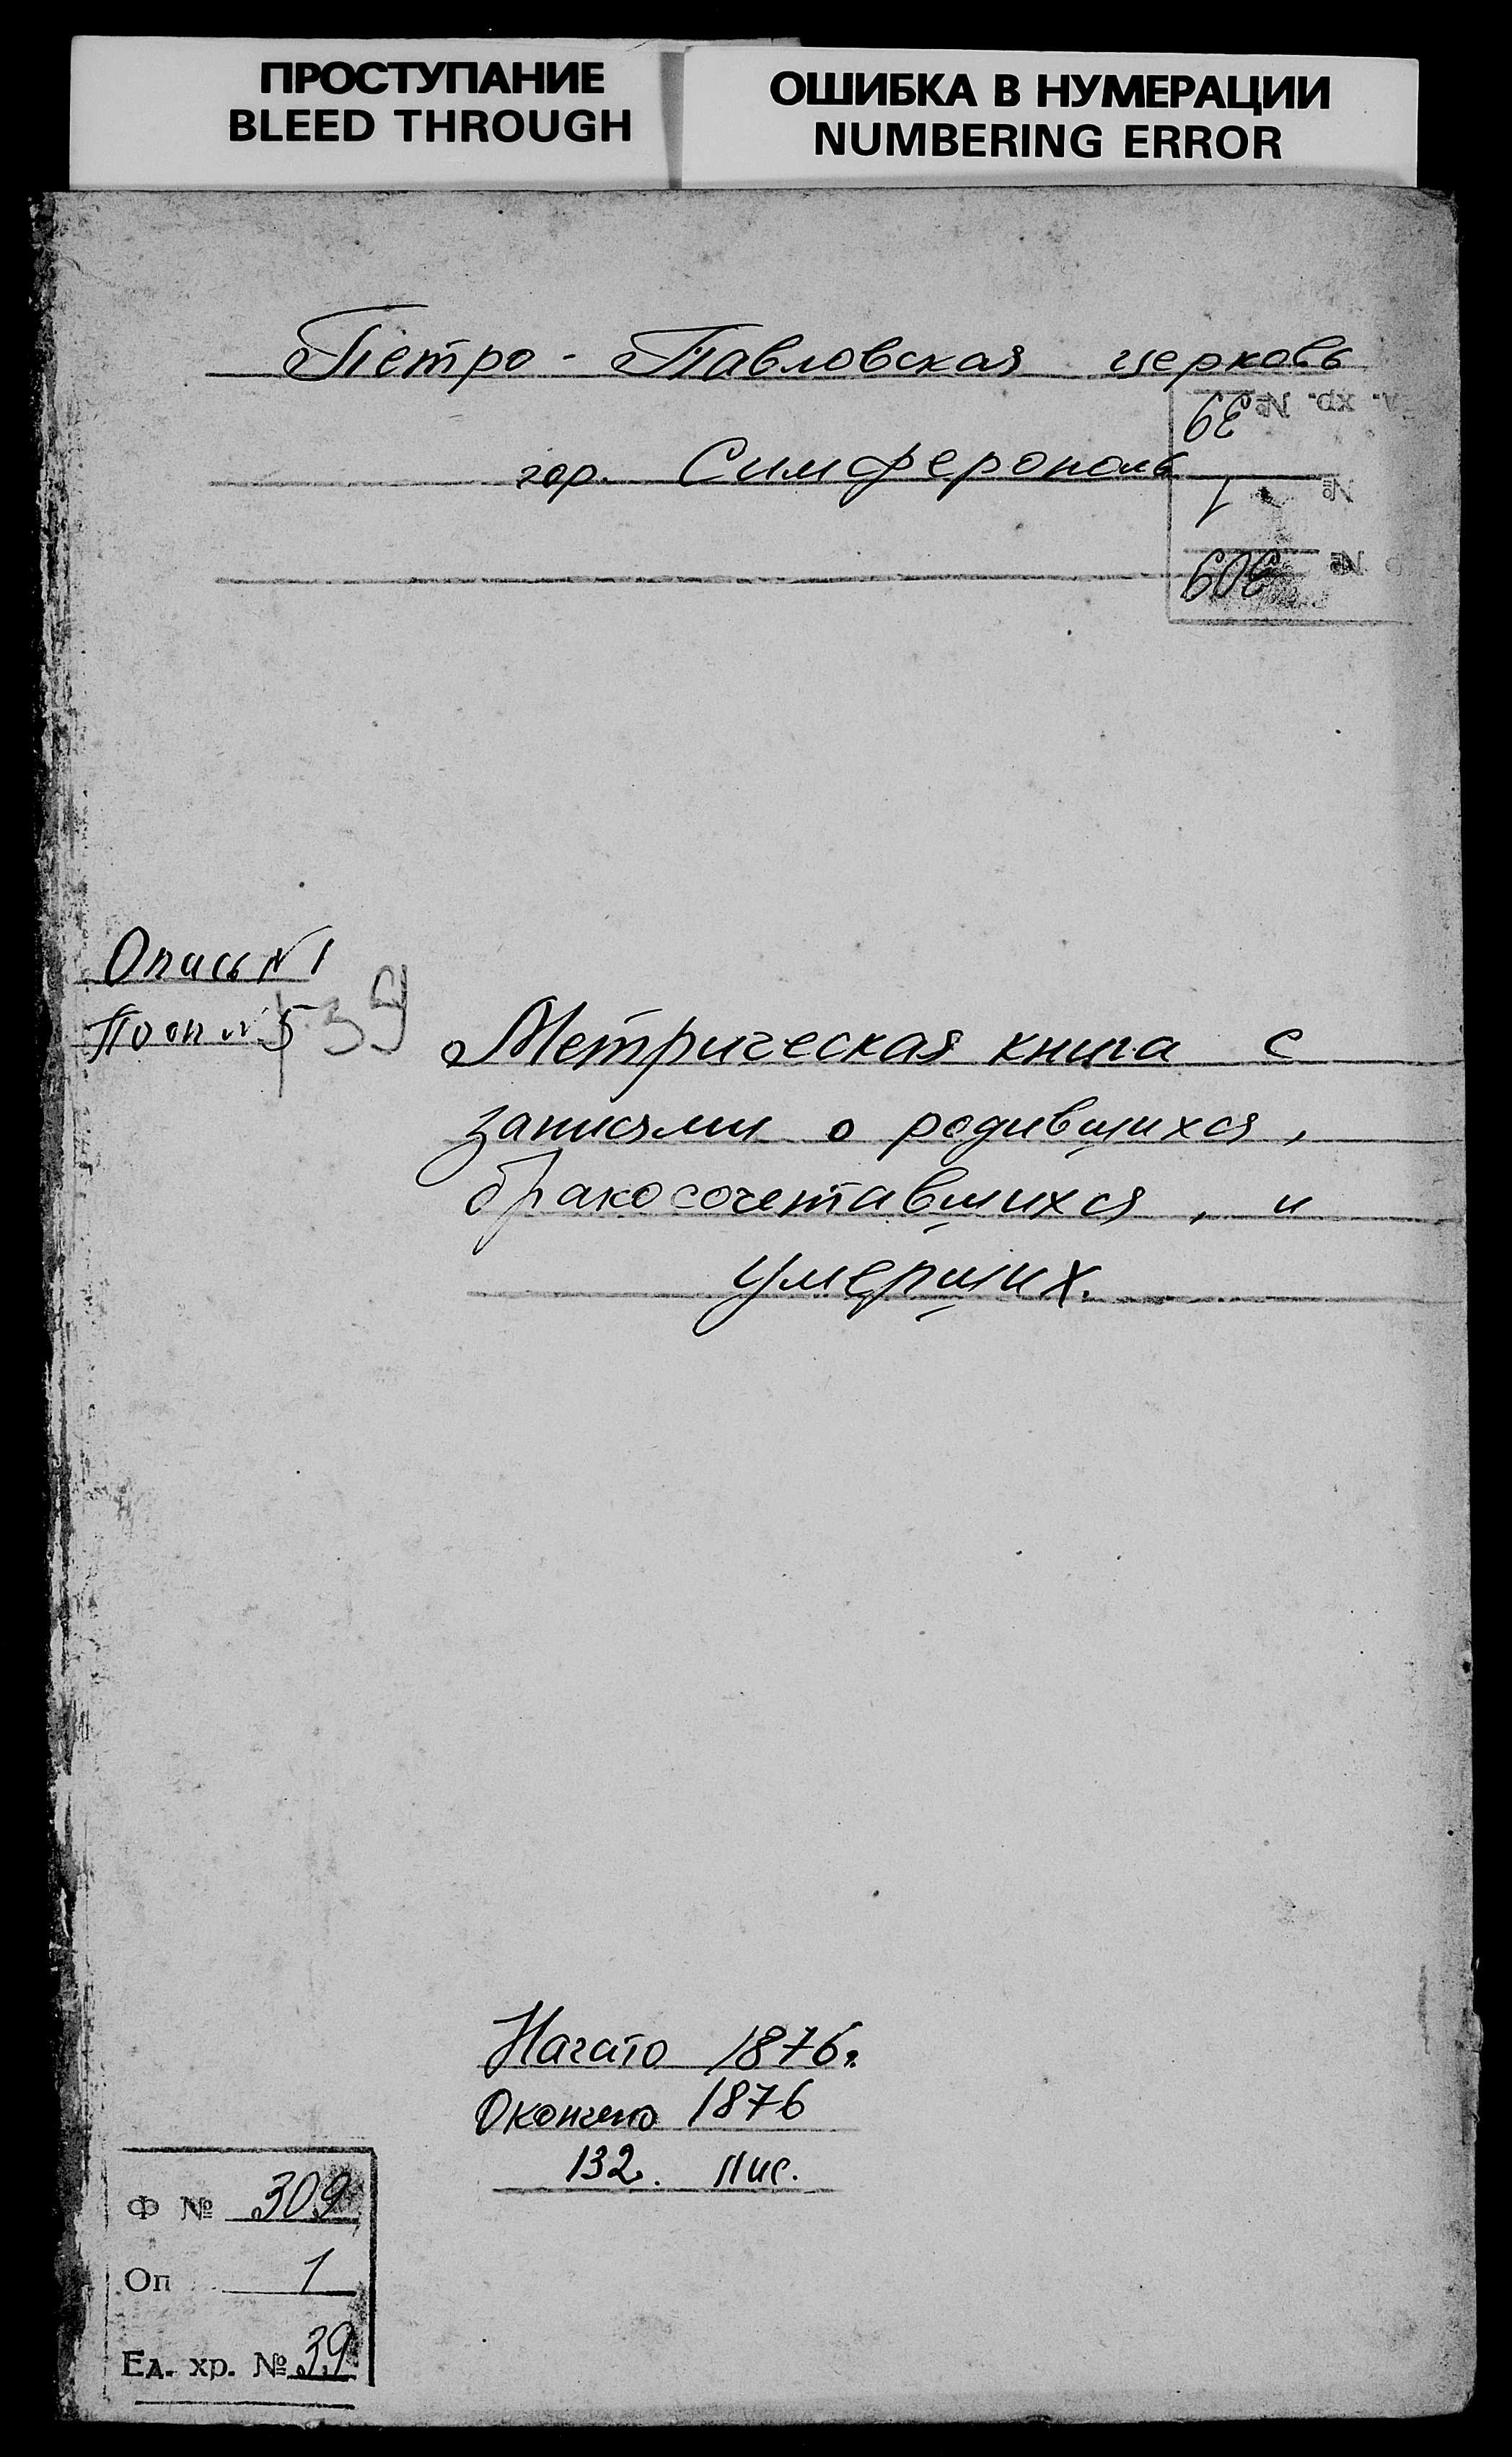 ПРОСТУПАНИЕ
BLEED THROUGH
ОШИБКА В НУМЕРАЦИИ
NUMBERING ERROR
Петро - Павловская церковь
гор. Симферополь
Ед. хр. № 39
№ 1
№ 309
Опись №1
По оп № 5 39
Метрическая книга с
записями о родившихся,
бракосочетавшихся, и
умерших.
Начато 1876г.
Окончено 1876
132. лис.
Ф № 309
Оп 1
Ед. хр. № 39